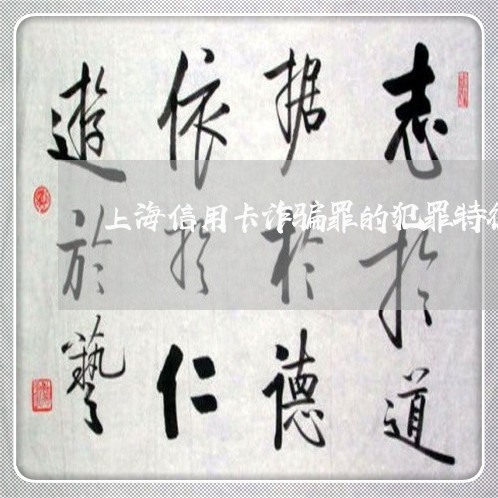 志於道
据於德
依於仁
遊於藝
上海信用卡诈骗罪的犯罪特